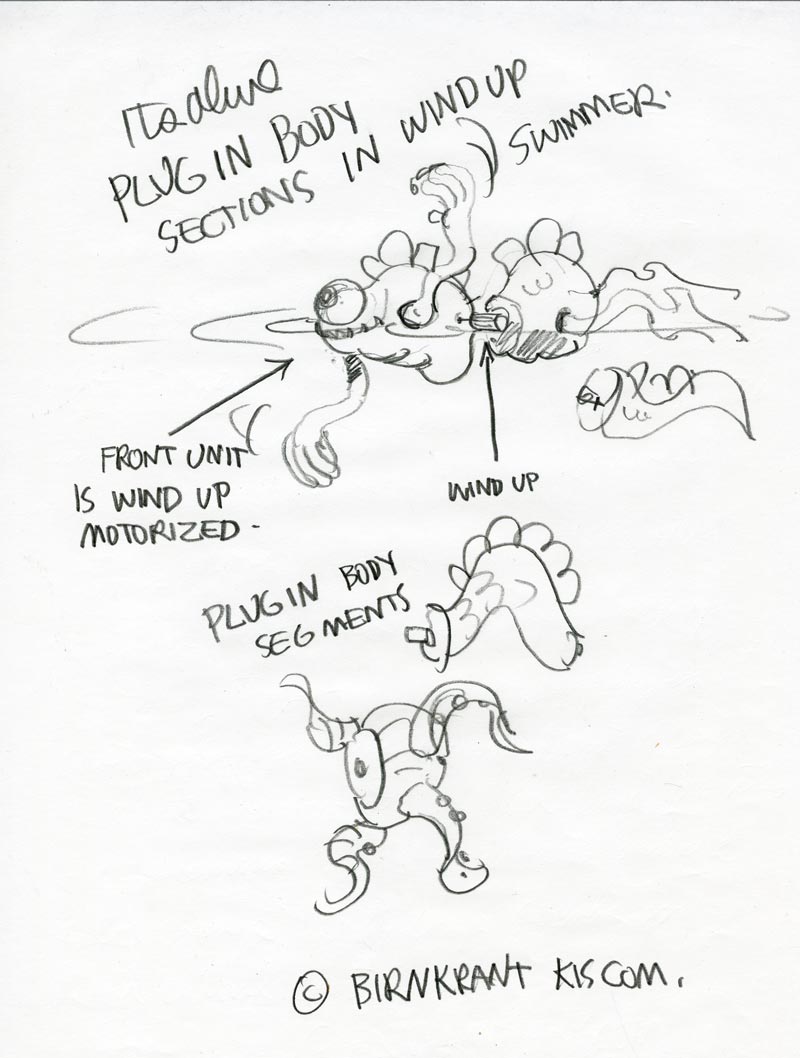 PLUG IN BODY
SECTIONS IN WIND UP
SWIMMER.
FRONT UNIT
IS WIND UP
MOTORIZED -
WIND UP
PLUG IN BODY
SEGMENTS
© BIRNKRANT KISCOM.